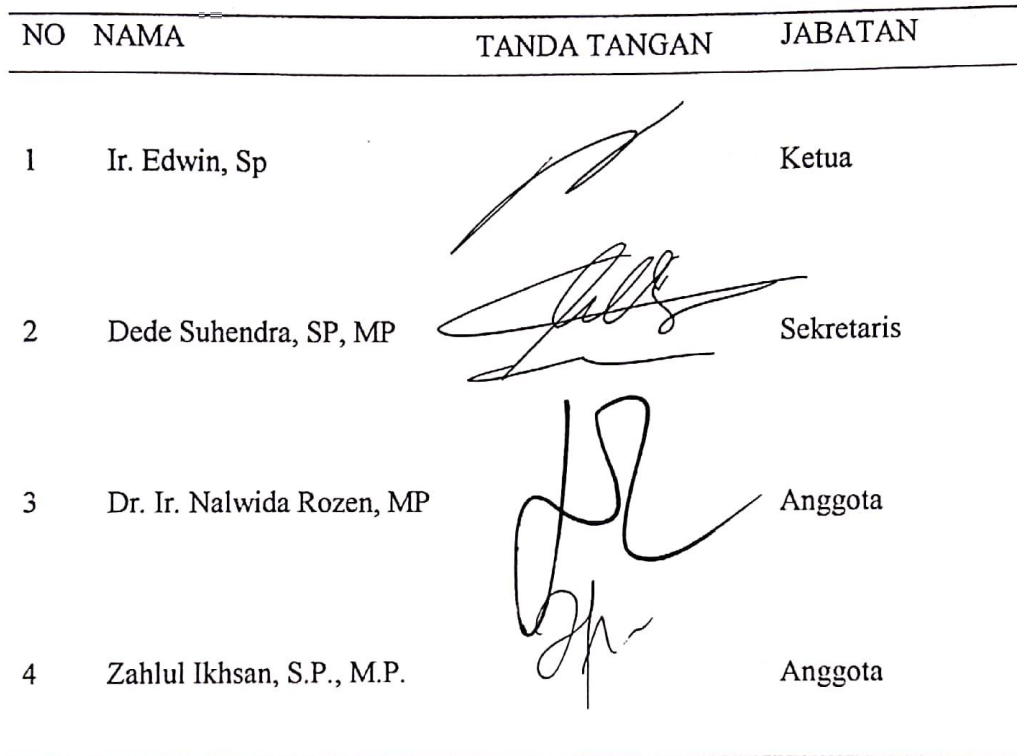 NO NAMA TANDA TANGAN JABATAN
1 Ir. Edwin, Sp Ketua
2 Dede Suhendra, SP, MP Sekretaris
3 Dr. Ir. Nalwida Rozen, MP Anggota
4 Zahlul Ikhsan, S.P., M.P. Anggota